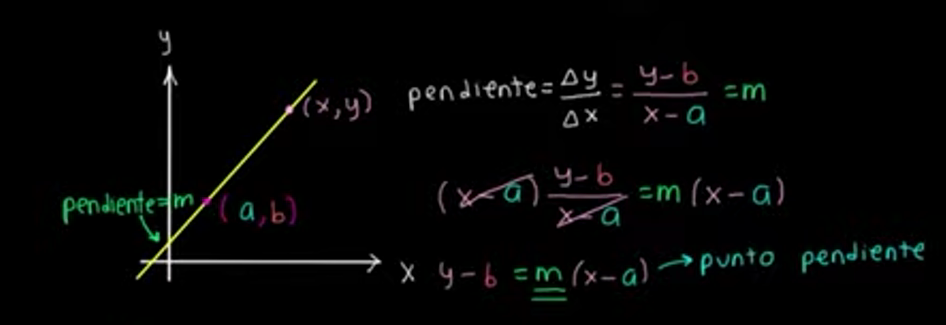 y
(x,y)
pendiente = Δy/Δx = y-b/x-a = m
pendiente=m
(a,b)
(x-a) y-b/x-a = m(x-a)
x
y-b = m(x-a) → punto pendiente